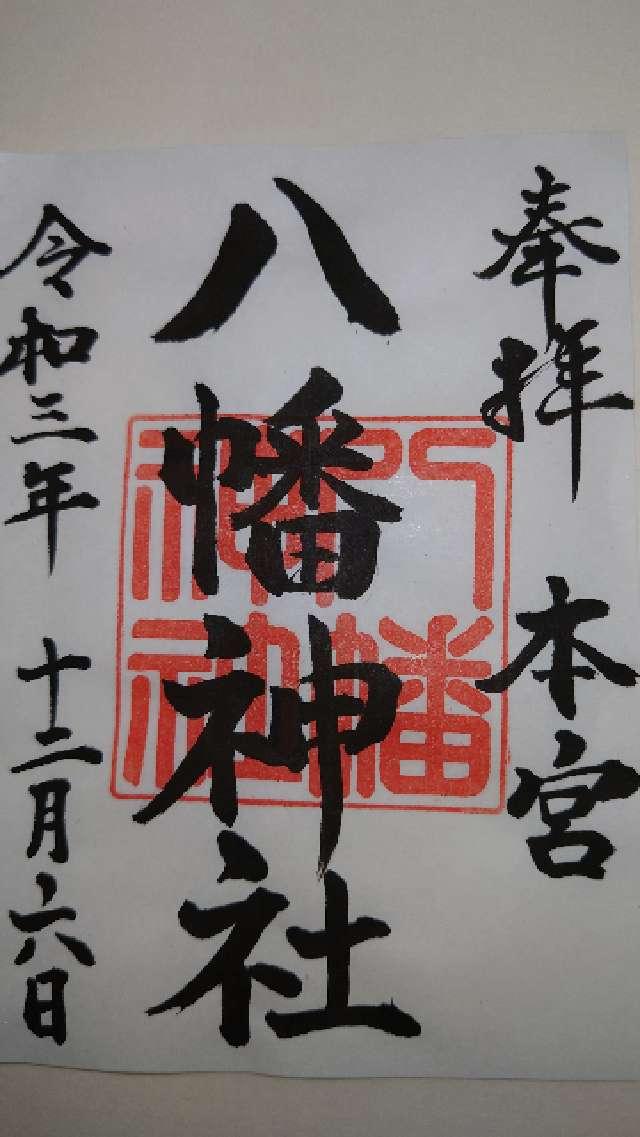 奉拝 本宮
八幡神社
令和三年 十二月六日
八幡
神社